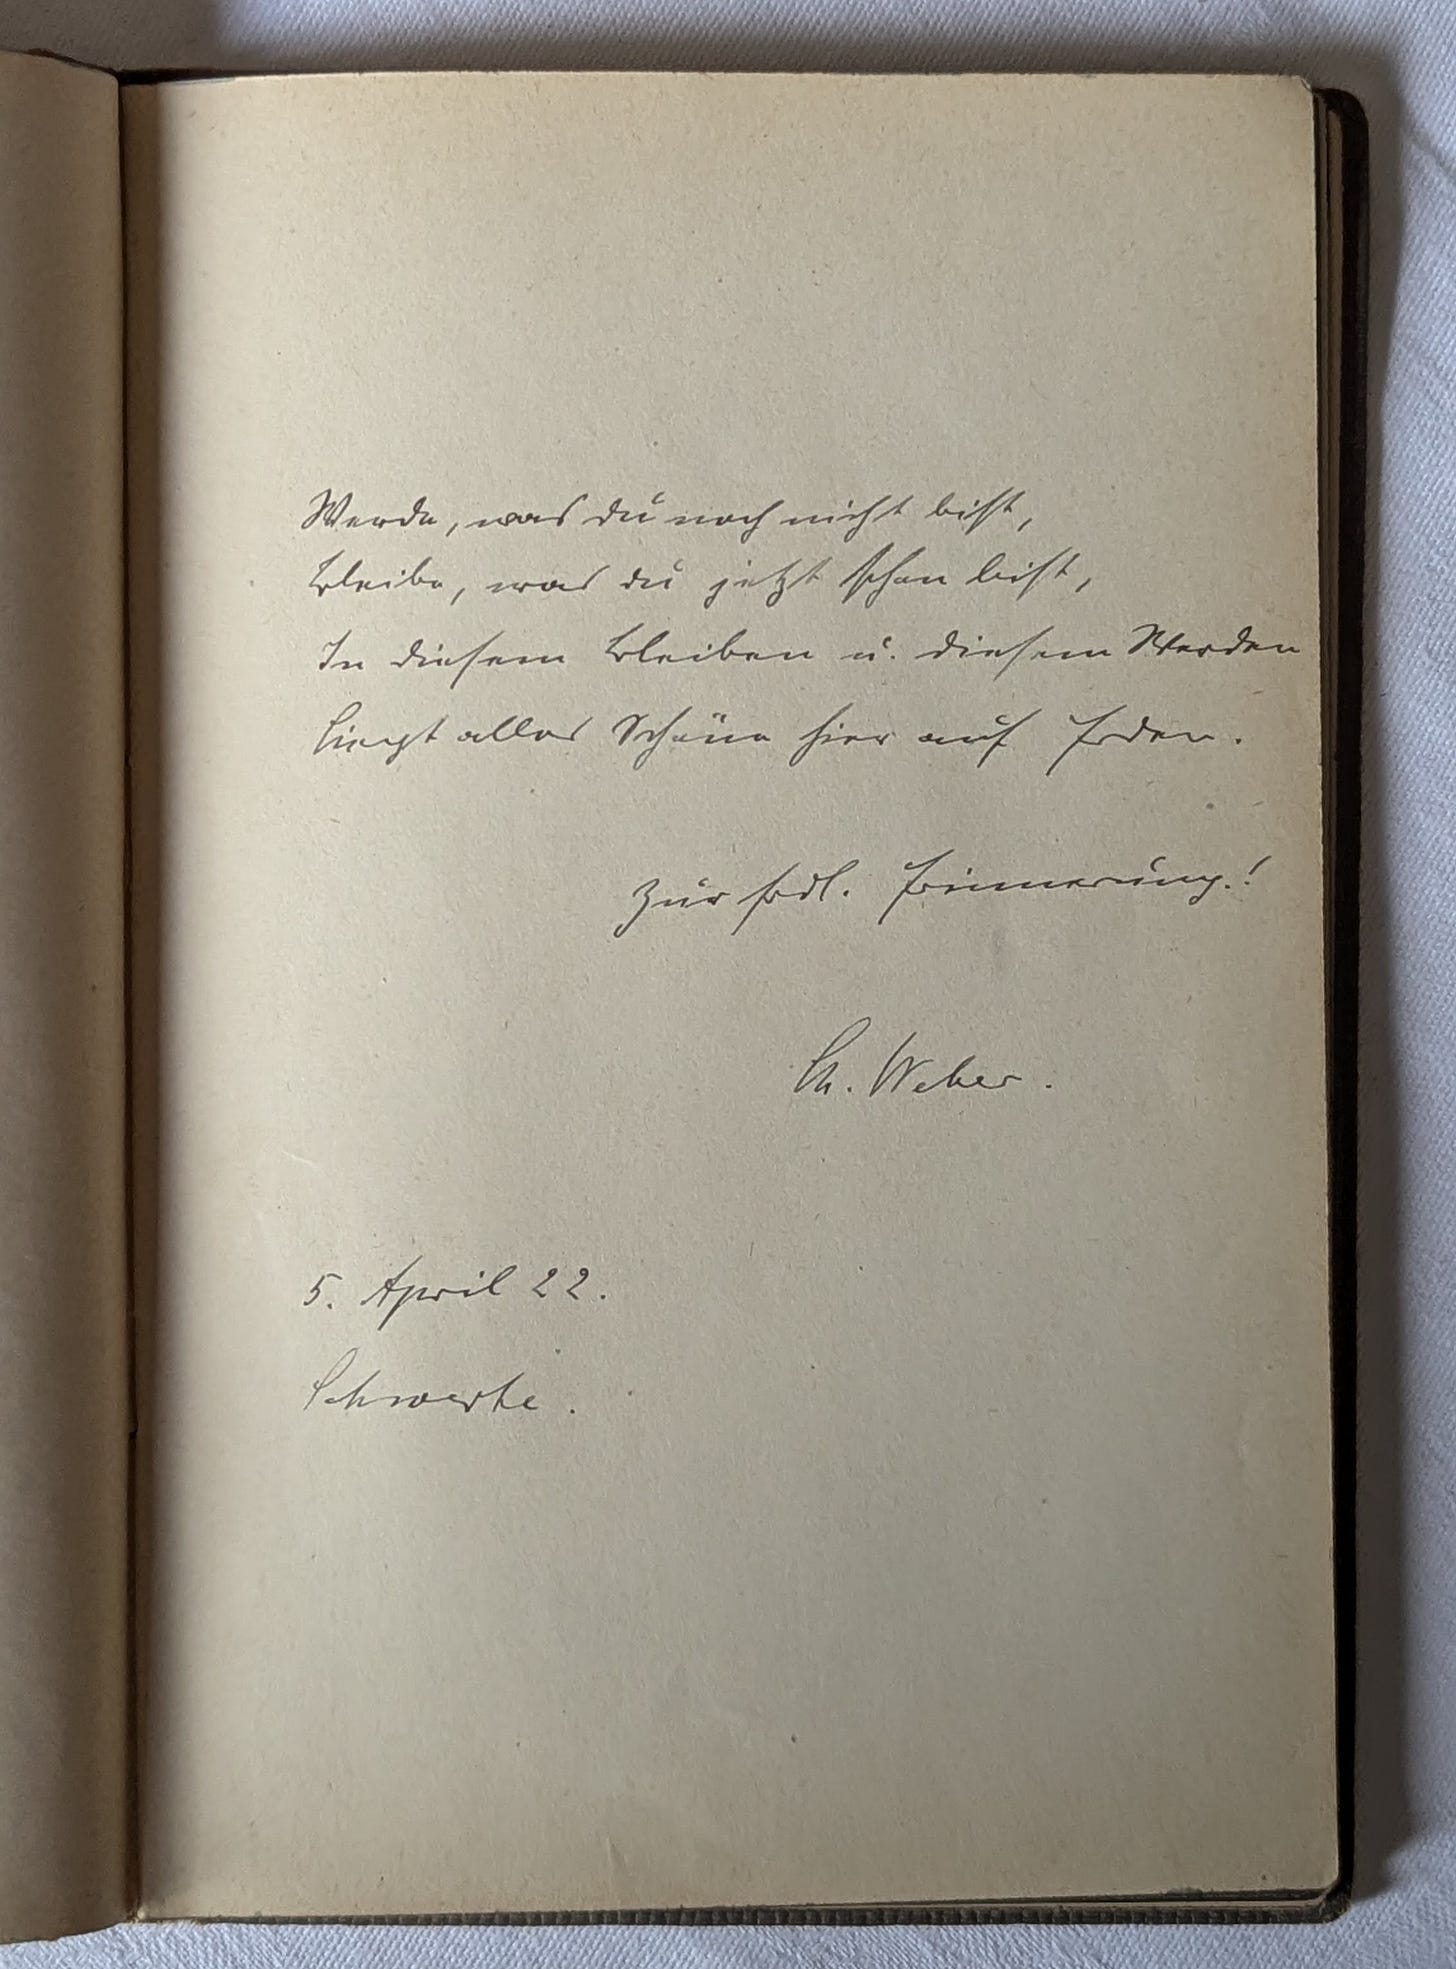 Werde, was du noch nicht bist,
Bleibe, was du jetzt schon bist,
In diesem Bleiben u. diesem Werden
Liegt alles Schöne hier auf Erden.
Zur frdl. Erinnerung!
Weber.
5. April 22.
Schwerte.